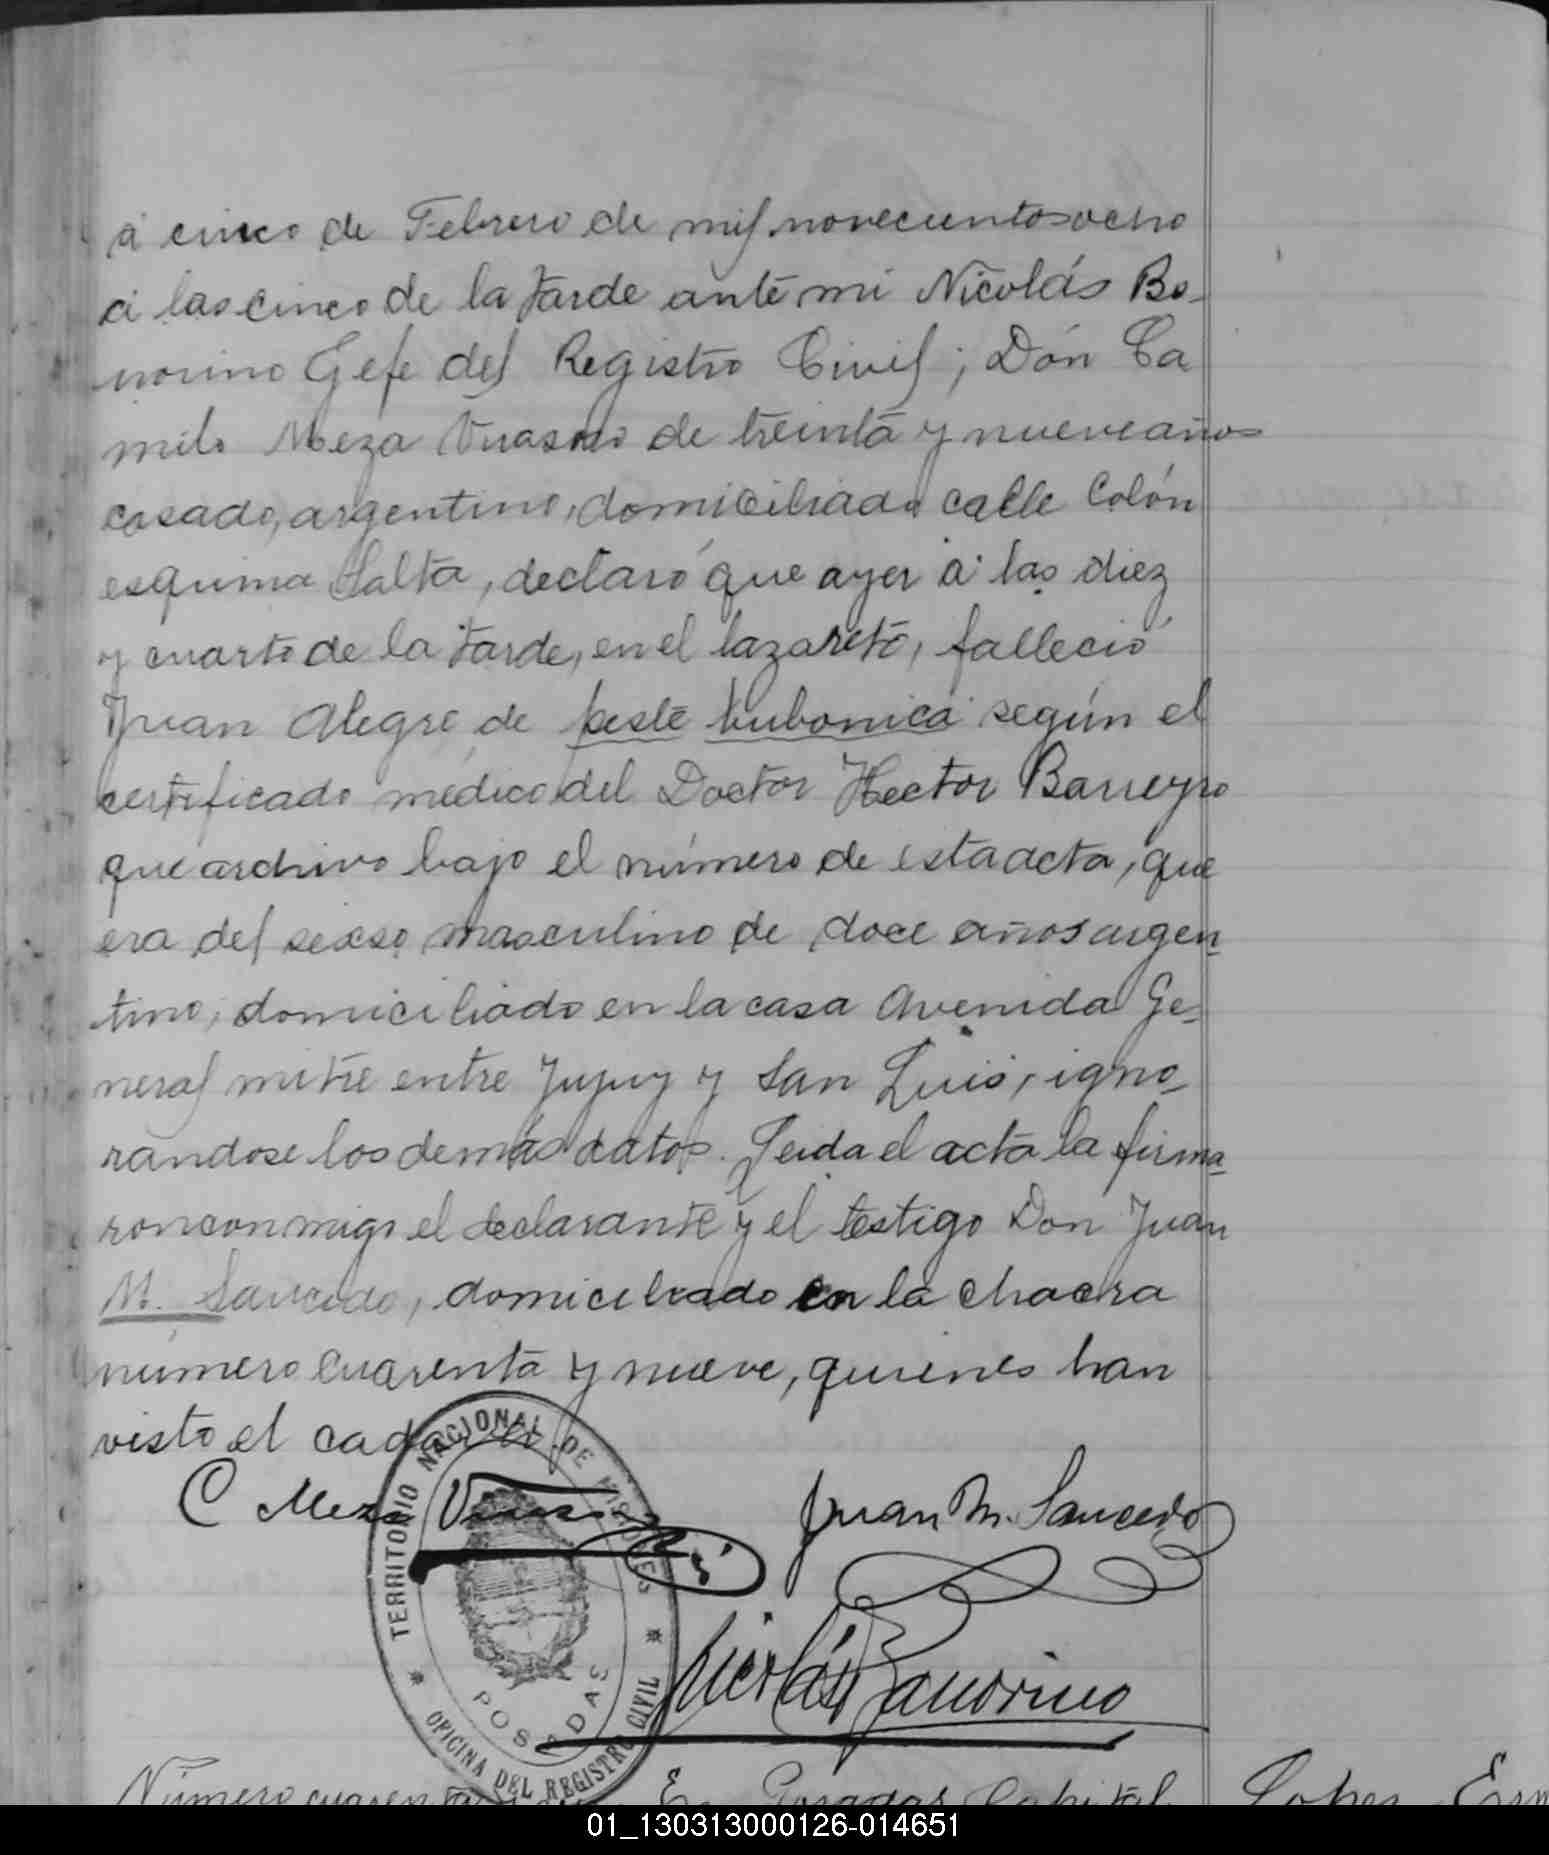 á cinco de Febrero de mil novecientos ocho
á las cinco de la tarde ante mi Nicolás Bo-
norino Gefe del Registro Civil; Dón Ca
milo Meza Virasoro de treinta y nueve años
casado, argentino, domiciliado calle Colón
esquina Salta, declaró que ayer á las diez
y cuarto de la tarde, en el lazareto, falleció
Juan Alegre de peste bubonica según el
certificado médico del Doctor Hector Barreyro
que archivo bajo el número de esta acta, que
era del sexso masculino de doce años argen
tino, domiciliado en la casa Avenida Ge-
neral mitre entre Jujuy y San Luis, igno
randose los demás datos. Leida el acta la firma
ron conmigo el declarante y el testigo Don Juan
M. Saucedo, domiciliado en la chacra
número cuarenta y nueve, quienes han
visto el cadaver.
C Meza Virasoro
Juan M. Saucedo
Nicolás Bonorino
TERRITORIO NACIONAL DE MISIONES
POSADAS
OFICINA DEL REGISTRO CIVIL
Número cuarenta En Posadas Capital
Lopez
01_130313000126-014651